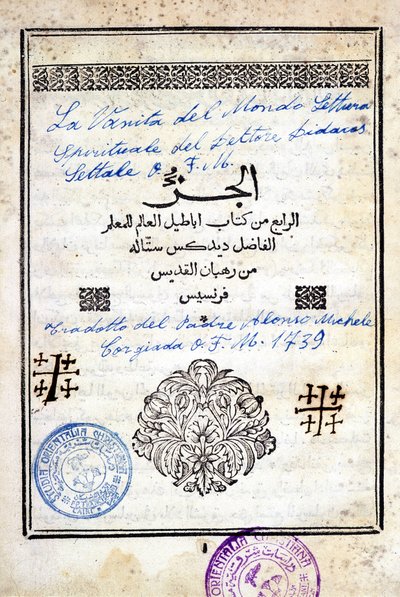 La Vanita del Mondo Lettura
Spirituale del Dettore Didacus
Settale O. F. M.
الجزء
الرابع من كتاب اباطيل العالم للمعلم
الفاضل ديدكس ستاله
من رهبان القديس
فرنسيس
Tradotto del Padre Alonso Michele
Corgiada O. F. M. 1739
STUDIA ORIENTALIA CHRISTIANA
ORIENTALIA CHRISTIANA